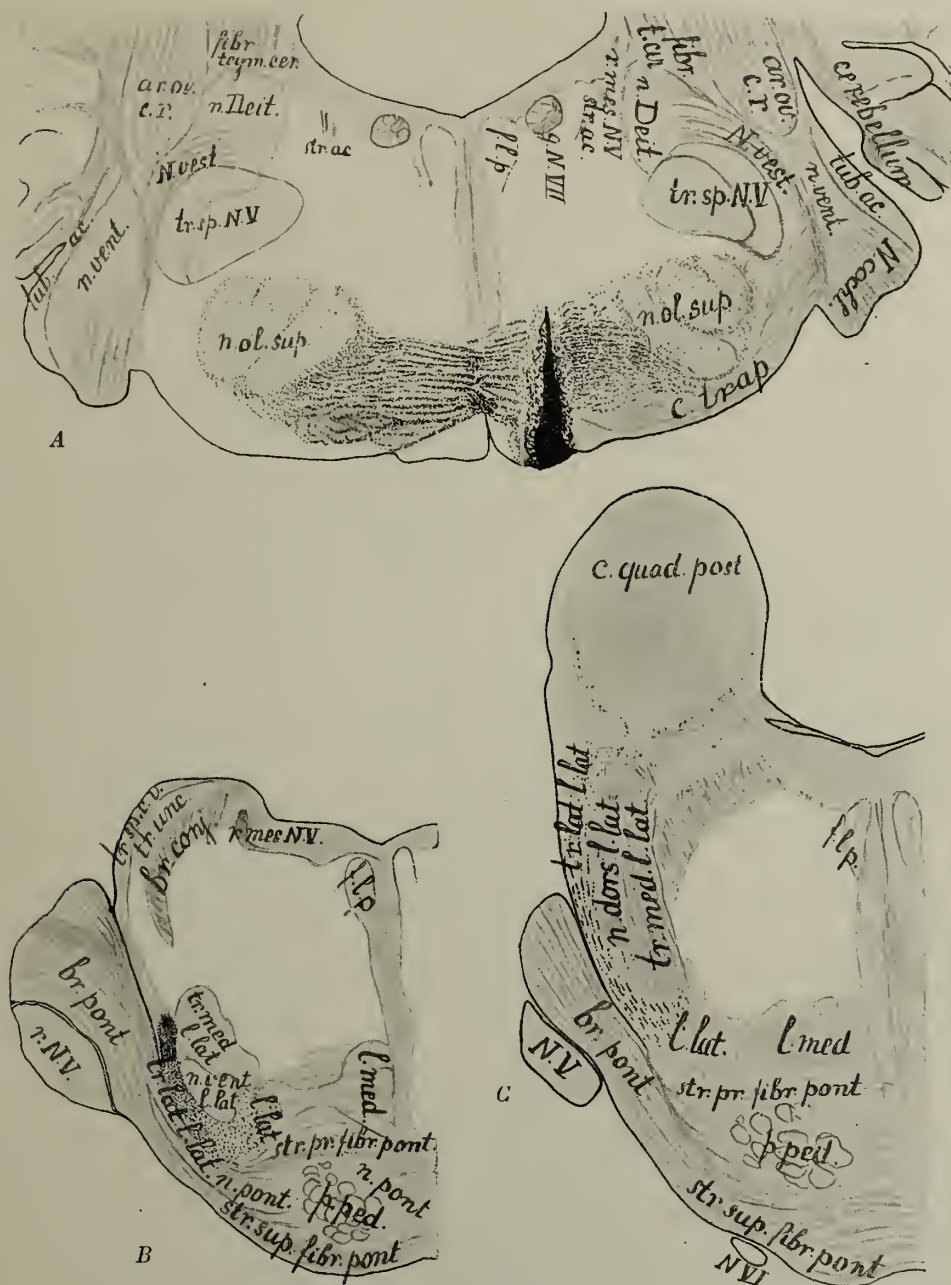 fibr
tegm.cer.
ar.ov.
c.r.
n.Deit.
str.ac
N.vest
tr.sp.N.V
tub. ac.
n.vent.
n.ol.sup
A
f.l.p
g.N.VII
str.ac.
r.mes.N.V
n.Deit.
fibr.
ar.ov
c.r
N.vest.
tr.sp.N.V
n.vent.
tub.ac.
cerebellum
N.cochl.
n.ol.sup
c.trap
c.quad.post
tr.lat l.lat
n.dors l.lat
tr.med.l.lat
f.l.p.
br.pont
N.V
l.lat.
l.med
str.pr.fibr.pont
p.ped.
str.sup.fibr.pont
N VI
C
tr.sp.c.v.
tr.unc
br.conj
r.mesN.V.
f.l.p
br.pont
r.N.V.
tr.med
l.lat
n.vent
l.lat
l.lat
l.med
tr.lat l.lat
str.pr.fibr.pont
n.pont
n.pont.
p.ped.
str.sup.fibr.pont
B